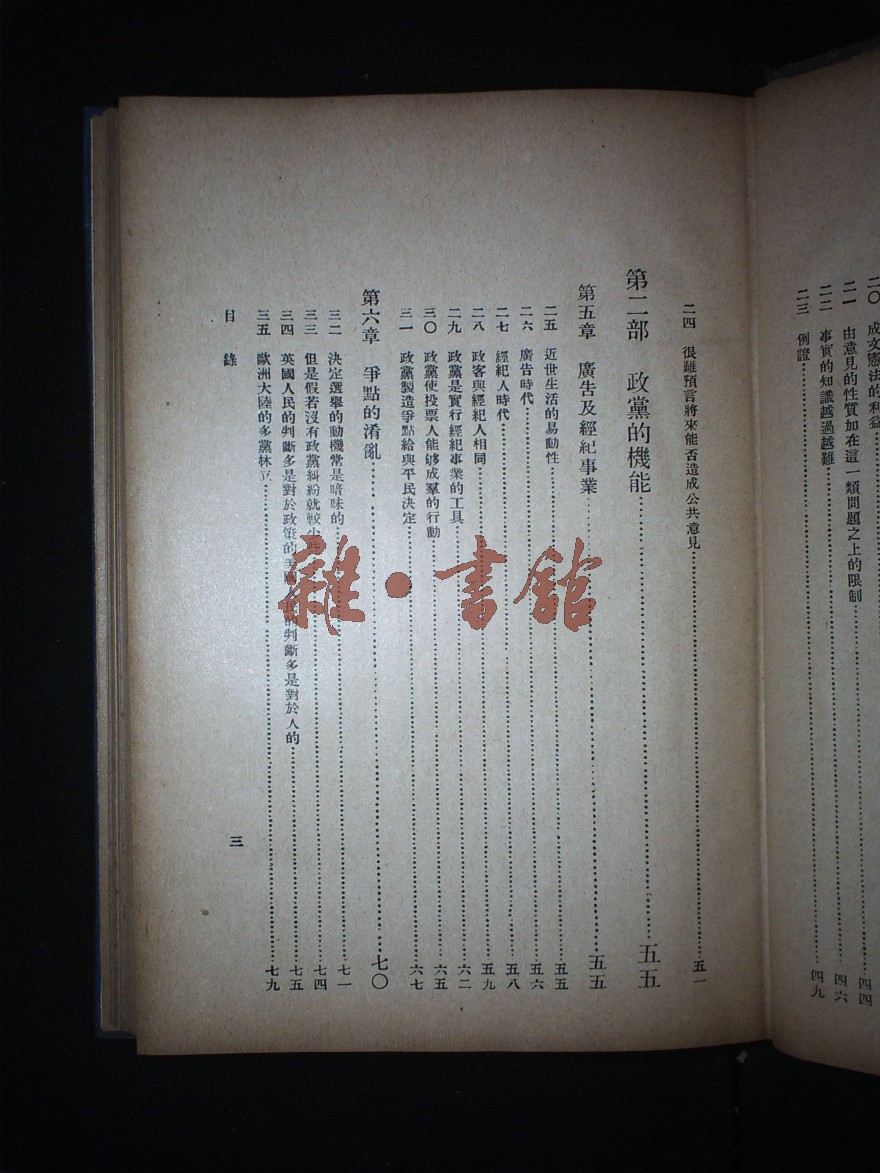 二〇 成文憲法的利益 四四
二一 由意見的性質加在這一類問題之上的限制 四六
二二 事實的知識越過越難
二三 例證 四九
二四 很難預言將來能否造成公共意見 五一
第二部 政黨的機能 五五
第五章 廣告及經紀事業 五五
二五 近世生活的易動性 五五
二六 廣告時代 五六
二七 經紀人時代 五八
二八 政客與經紀人相同 五九
二九 政黨是實行經紀事業的工具 六二
三〇 政黨使投票人能够成羣的行動 六五
三一 政黨製造爭點給與平民決定 六七
第六章 爭點的淆亂 七〇
三二 決定選舉的動機常是暗昧的 七一
三三 但是假若沒有政黨糾紛就較少些 七四
三四 英國人民的判斷多是對於政策的美國人民的判斷多是對於人的 七五
三五 歐洲大陸的多黨林立 七九
目錄
三
雜·書館